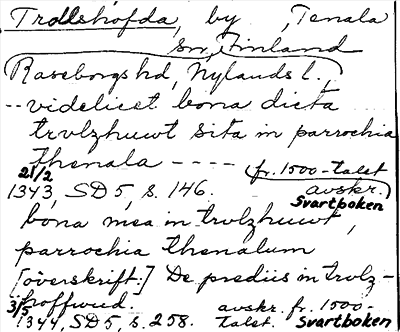 Trollshofda, by , Tenala
sn, Finland
(Raseborgs hd, Nylands l.)
-- videlicet bona dicta
trvlzhuwt sita in parrochia
thenala ----
(fr. 1500-talet
21/2
1343, SD 5, s. 146. avskr.)
Svartboken
bona mea in trvlzhuwt,
parrochia thenalum
[överskrift:] De prediis in trvlz-
hoffwud. avskr. fr. 1500-
3/5
1344, SD 5, s. 258. talet. Svartboken